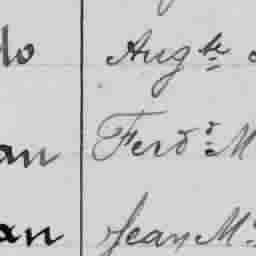 do Augte
an Ferdd M
an Jean M